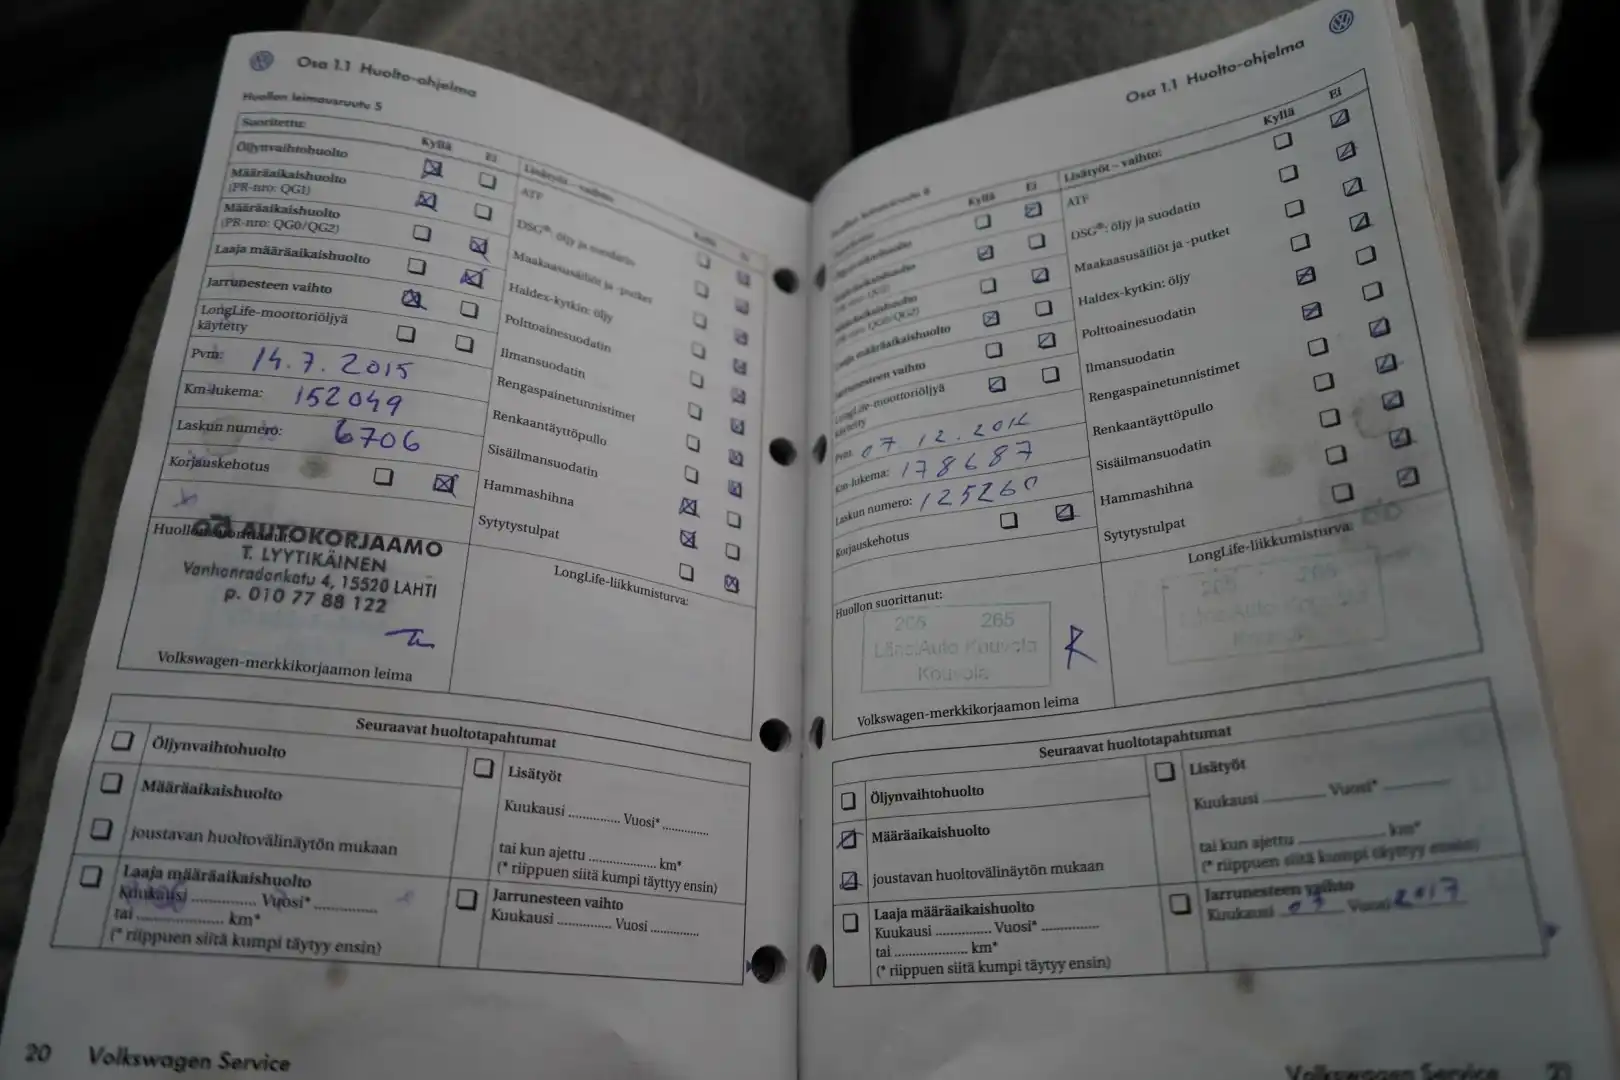 Osa 1.1 Huolto-ohjelma
Huollon leimausruutu 5
Suoritettu:
Kyllä Ei
Öljynvaihtohuolto
Määräaikaishuolto
(PR-nro: QG1)
Määräaikaishuolto
(PR-nro: QG0/QG2)
Laaja määräaikaishuolto
Jarrunesteen vaihto
LongLife-moottoriöljyä
käytetty
Pvm: 14.7.2015
Km-lukema: 152049
Laskun numero: 6706
Korjauskehotus
Huollon suorittanut:
AUTOKORJAAMO
T. LYYTIKÄINEN
Vanhanradankatu 4, 15520 LAHTI
p. 010 77 88 122
Volkswagen-merkkikorjaamon leima
Lisätyöt – vaihto:
Kyllä
ATF
DSG®: öljy ja suodatin
Maakaasusäiliöt ja -putket
Haldex-kytkin: öljy
Polttoainesuodatin
Ilmansuodatin
Rengaspainetunnistimet
Renkaantäyttöpullo
Sisäilmansuodatin
Hammashihna
Sytytystulpat
LongLife-liikkumisturva:
Seuraavat huoltotapahtumat
Öljynvaihtohuolto
Määräaikaishuolto
joustavan huoltovälinäytön mukaan
Laaja määräaikaishuolto
Kuukausi .............. Vuosi* ..............
tai .................. km*
(* riippuen siitä kumpi täytyy ensin)
Lisätyöt
Kuukausi ............. Vuosi* ...........
tai kun ajettu ................. km*
(* riippuen siitä kumpi täytyy ensin)
Jarrunesteen vaihto
Kuukausi ............. Vuosi ............
20 Volkswagen Service
Osa 1.1 Huolto-ohjelma
Kyllä Ei
Määräaikaishuolto
Laaja määräaikaishuolto
Jarrunesteen vaihto
LongLife-moottoriöljyä
käytetty
Pvm: 07.12.2016
Km-lukema: 178687
Laskun numero: 125260
Korjauskehotus
Huollon suorittanut:
265
Länsi-Auto Kouvola
Kouvola
R
Volkswagen-merkkikorjaamon leima
Lisätyöt – vaihto:
Kyllä Ei
ATF
DSG®: öljy ja suodatin
Maakaasusäiliöt ja -putket
Haldex-kytkin: öljy
Polttoainesuodatin
Ilmansuodatin
Rengaspainetunnistimet
Renkaantäyttöpullo
Sisäilmansuodatin
Hammashihna
Sytytystulpat
LongLife-liikkumisturva:
Seuraavat huoltotapahtumat
Öljynvaihtohuolto
Määräaikaishuolto
joustavan huoltovälinäytön mukaan
Laaja määräaikaishuolto
Kuukausi .............. Vuosi* ..............
tai .................. km*
(* riippuen siitä kumpi täytyy ensin)
Lisätyöt
Kuukausi ............. Vuosi* .............
tai kun ajettu ................. km*
(* riippuen siitä kumpi täytyy ensin)
Jarrunesteen vaihto
Kuukausi 07 Vuosi 2017
Volkswagen Service